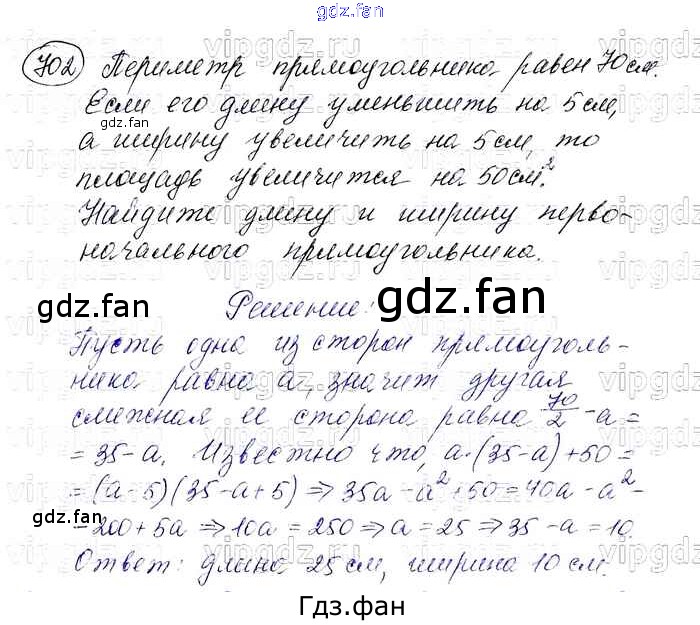 gdz.fan
702 Периметр прямоугольника равен 70 см.
Если его длину уменьшить на 5 см,
gdz.fan
а ширину увеличить на 5 см, то
площадь увеличится на 50 см².
Найдите длину и ширину перво-
начального прямоугольника.
gdz.fan gdz.fan
Решение:
Пусть одна из сторон прямоуголь-
ника равна a, значит другая
смежная ей сторона равна 70/2 - a =
= 35 - a. Известно что, a·(35-a)+50=
= (a-5)(35-a+5) ⇒ 35a - a² + 50 = 40a - a² -
- 200 + 5a ⇒ 10a = 250 ⇒ a = 25 ⇒ 35 - a = 10.
gdz.fan
Ответ: длина 25 см, ширина 10 см.
Гдз.фан